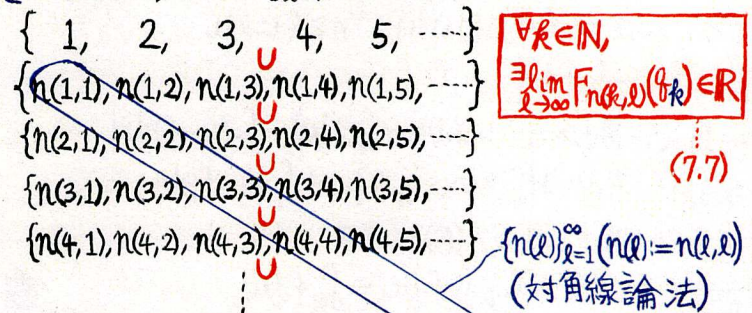 { 1, 2, 3, 4, 5, ……}
∪
{n(1,1), n(1,2), n(1,3), n(1,4), n(1,5), ……}
∪
{n(2,1), n(2,2), n(2,3), n(2,4), n(2,5), ……}
∪
{n(3,1), n(3,2), n(3,3), n(3,4), n(3,5), ……}
∪
{n(4,1), n(4,2), n(4,3), n(4,4), n(4,5), ……}
∪
∀k∈ℕ,
∃lim_{ℓ→∞} F_{n(k,ℓ)}(q_k)∈ℝ
(7.7)
{n(ℓ)}_{ℓ=1}^{∞} (n(ℓ):=n(ℓ,ℓ))
(対角線論法)